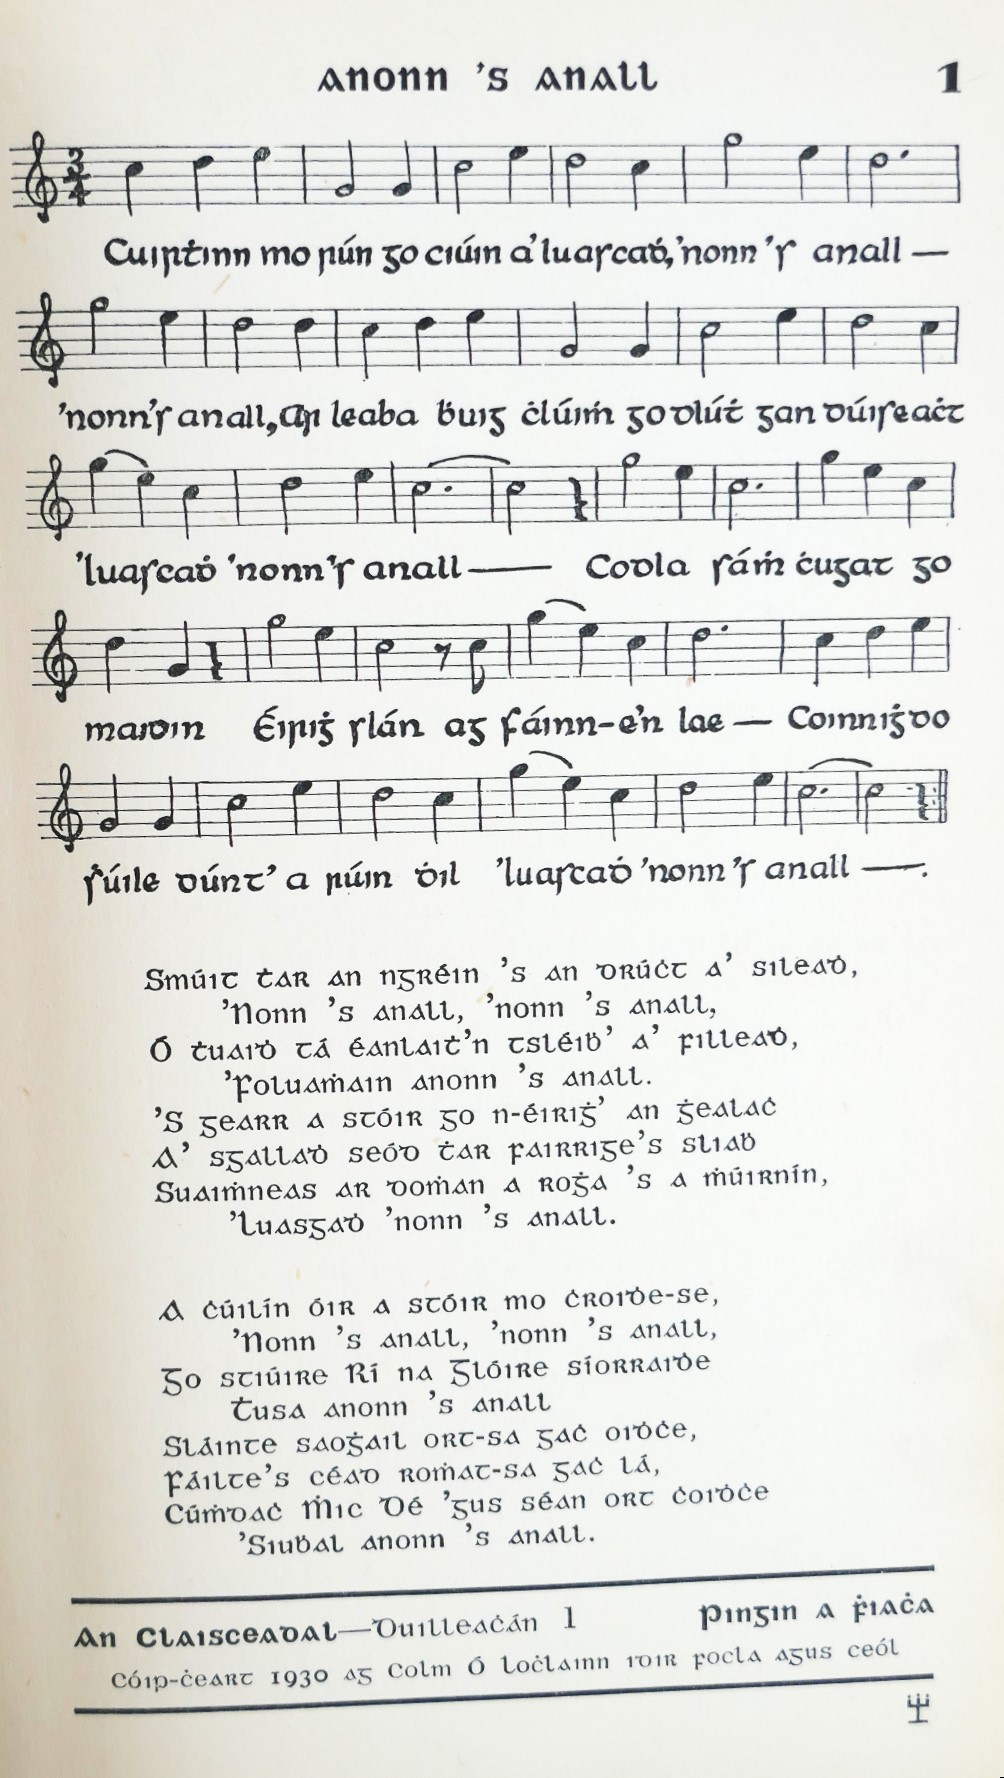 Anonn 's Anall 1
Cuirfinn mo rún go ciúin a' luascaḋ, 'nonn 's anall —
'nonn 's anall, Ar leaba ḃuig ċlúiṁ go dlúṫ gan dúiseaċt
'luascaḋ 'nonn 's anall —— Codla sáṁ ċugat go
maidin Éiriġ slán ag fáinn-e'n lae — Coinniġ do
ṡúile dúnt' a rúin ḋil 'luascaḋ 'nonn 's anall ——.
Smúit ṫar an ngréin 's an drúċt a' sileaḋ,
'Nonn 's anall, 'nonn 's anall,
Ó ṫuaiḋ tá éanlaiṫ'n tsléiḃ' a' filleaḋ,
'Foluaṁain anonn 's anall.
'S gearr a stóir go n-éiriġ' an ġealaċ
A' sgallaḋ seód ṫar fairrige's sliaḃ
Suaiṁneas ar doṁan a roġa 's a ṁúirnín,
'Luasgaḋ 'nonn 's anall.
A ċúilín óir a stóir mo ċroiḋe-se,
'Nonn 's anall, 'nonn 's anall,
Go stiúire Rí na Glóire síorraiḋe
Ṫusa anonn 's anall
Sláinte saoġail ort-sa gaċ oiḋċe,
Fáilte's céad roṁat-sa gaċ lá,
Cúṁdaċ Ṁic Dé 'gus séan ort ċoiḋċe
'Siuḃal anonn 's anall.
An Claisceadal—Duilleaċán 1 Pingin a ḟiaċa
Cóip-ċeart 1930 ag Colm Ó Loċlainn idir focla agus ceól